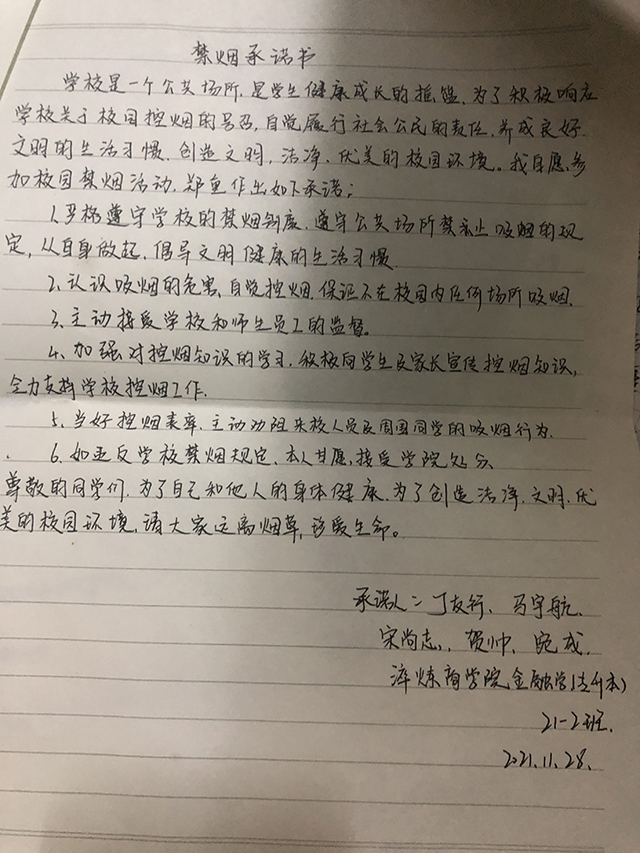 禁烟承诺书
学校是一个公共场所,是学生健康成长的摇篮,为了积极响应
学校关于校园控烟的号召,自觉履行社会公民的责任,养成良好
文明的生活习惯,创造文明,洁净,优美的校园环境。我自愿参
加校园禁烟活动,郑重作出如下承诺:
1.严格遵守学校的禁烟制度,遵守公共场所禁止吸烟的规
定,从自身做起,倡导文明健康的生活习惯
2.认识吸烟的危害,自觉控烟,保证不在校园内任何场所吸烟.
3.主动接受学校和师生员工的监督。
4.加强对控烟知识的学习,积极向学生及家长宣传控烟知识,
全力支持学校控烟工作.
5.当好控烟表率,主动劝阻来校人员及周围同学的吸烟行为.
6.如违反学校禁烟规定,本人甘愿接受学院处分、
尊敬的同学们,为了自己和他人的身体健康,为了创造洁净,文明,优
美的校园环境,请大家远离烟草,珍爱生命。
承诺人:丁友行、马宇航、
宋尚志、贺帅、成.
淬炼商学院金融学(专升本)
21-2班.
2021.11.28.